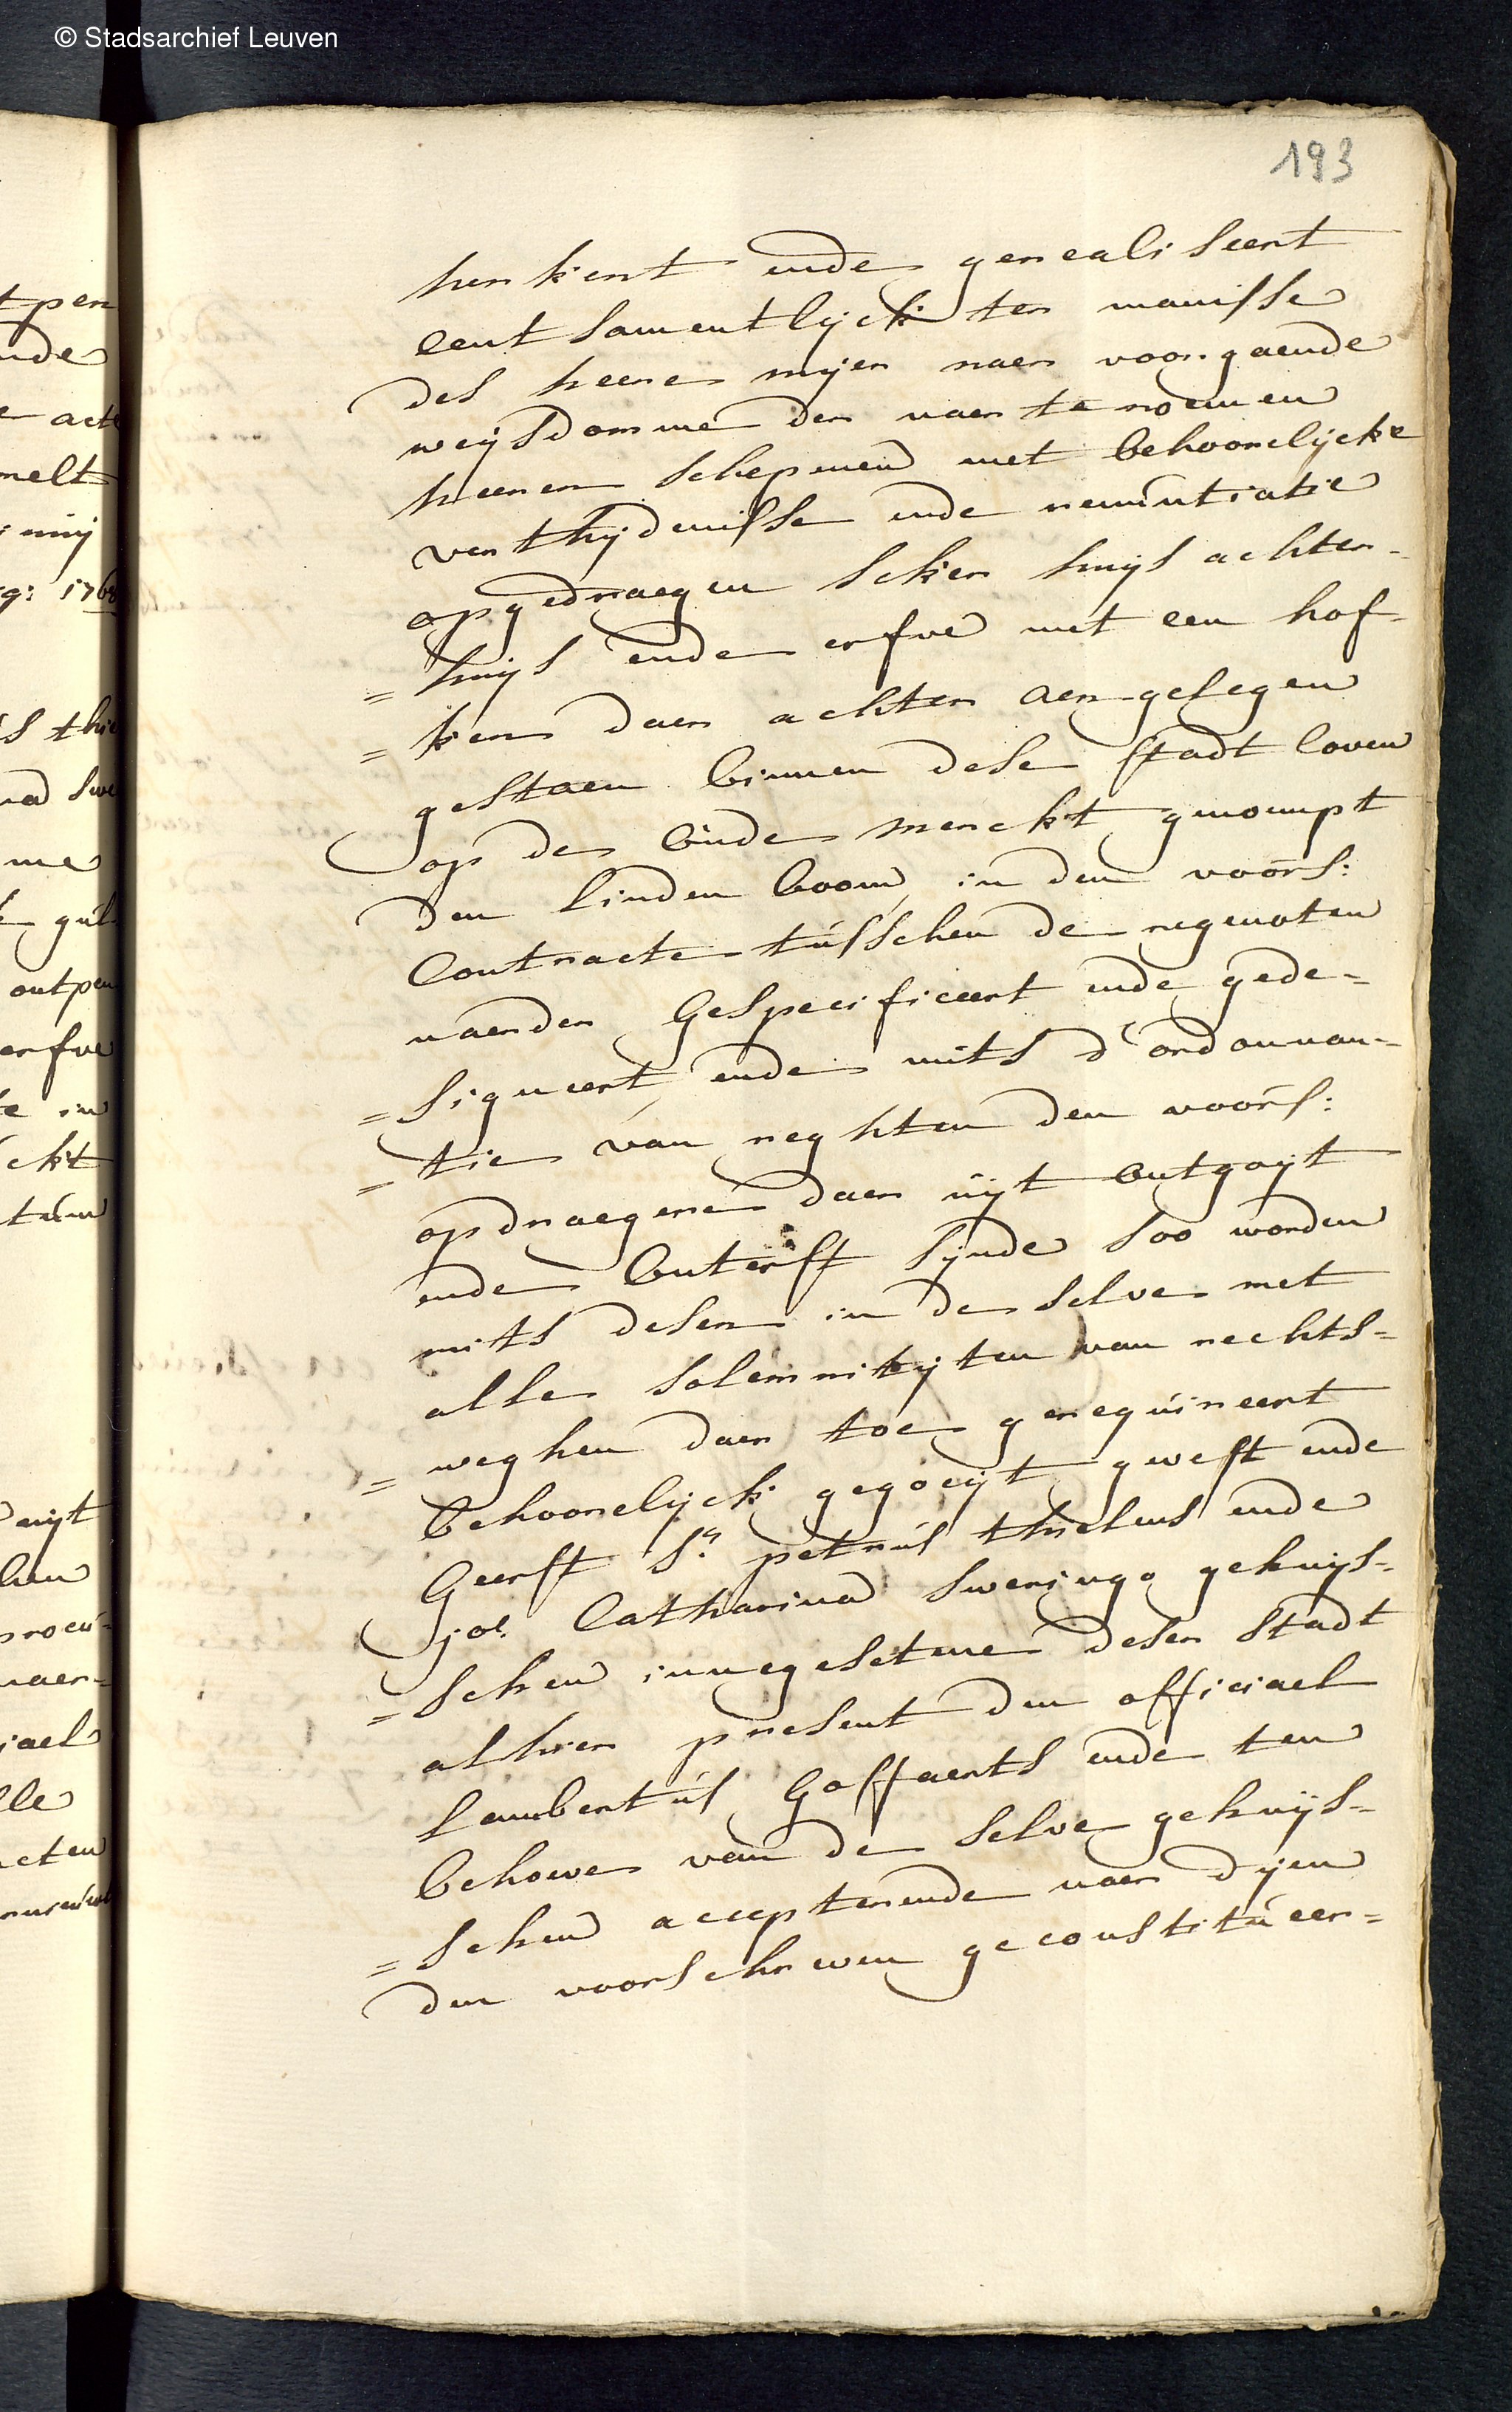 © Stadsarchief Leuven
193
herkent ende gerealiseert
eent samentlijck ter manisse
des heere mijer naer voorgaende
weijsdomme der naer te noemen
heeren schepenen met behoorelijcke
verthijdenisse ende renuntiatie
opgedraegen seker huijs achter-
= huijs ende erfve met een hof-
= ken daer achter aen gelegen
gestaen binnen dese stadt loven
op de oude merckt genoempt
den linden boom, in den voors:
contracte tusschen de regenoten
naerder gespecificeert ende gede-
= signeert, ende mits d'ordonnan-
= tie van reghten den voors:
opdraegere daer uijt ontgoijt
ende onterft sijnde soo worden
mits desen in de selve met
alle solemniteijten van rechts-
= weghen daer toe gerequireert
behoorelijck gegoeijt gewest ende
geerft Sr. petrus thielens ende
joe. Catharina sweringa gehuijs-
= schen innegesetene deser stadt
alhier present den officiael
lambertus goffaerts ende ten
behoeve van de selve gehuijs-
= schen accepterende naer dyen
den voorschreven geconstitueer=
t pen
nde
e acte
melt
mij
g: 1768
s thie
na swe
me
gul
ontpen
erfve
te in
ckt
uijt
procu-
naer-
iael
lle
cten